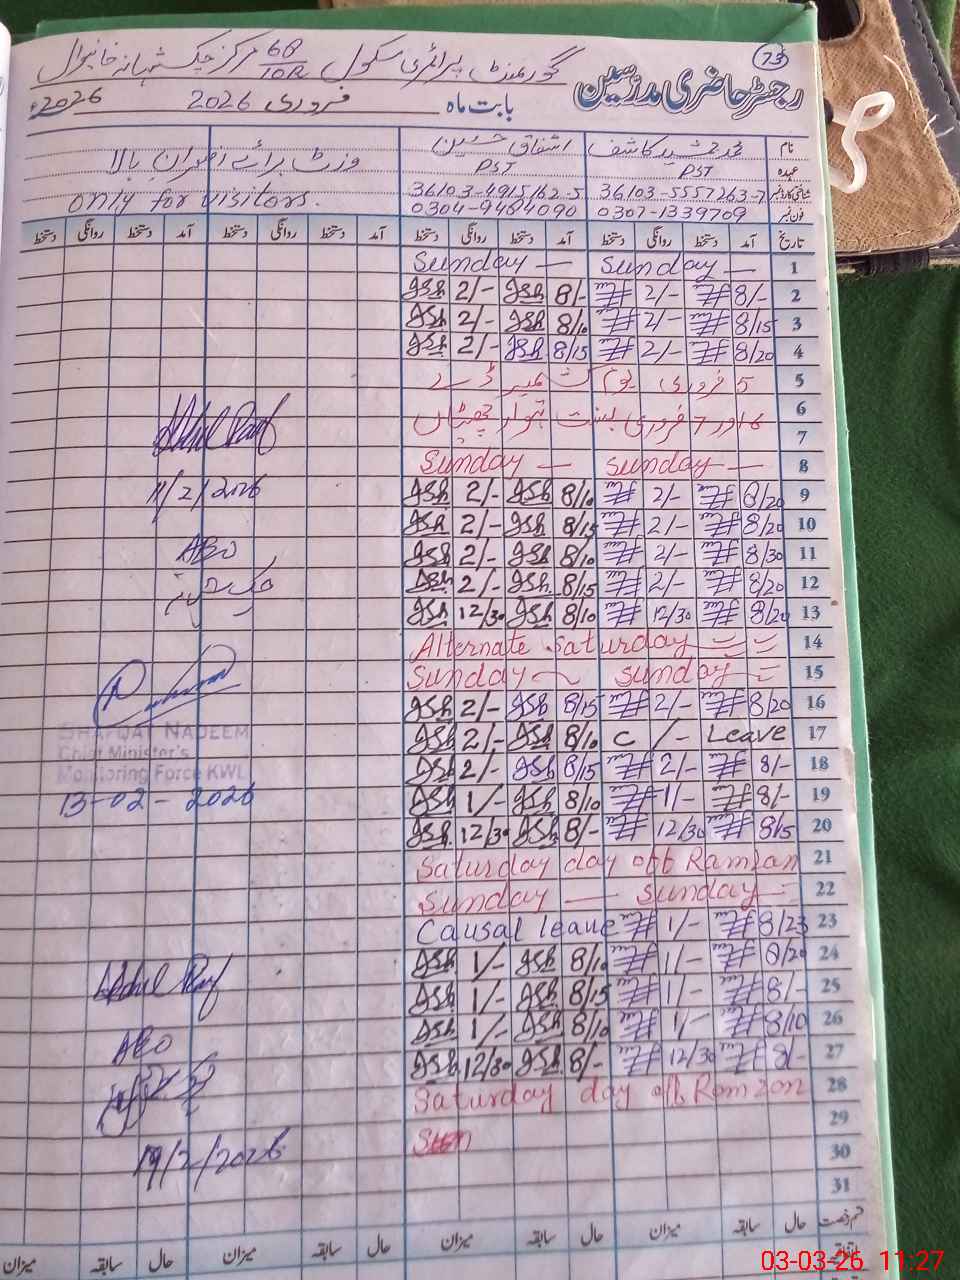 73
رجسٹر حاضری مدرسین
گورنمنٹ پرائمری سکول 68/10R مرکز چک شہانہ خانیوال
بابت ماہ فروری 2026 2026ء
نام محمد جمشید کاشف اشفاق حسین وزٹ برائے افسران بالا
عہدہ PST PST
شناختی کارڈ نمبر 36103-5557263-7 36103-4915162-5 only for visitors.
فون نمبر 0307-1339709 0304-9484090
تاریخ آمد دستخط روانگی دستخط آمد دستخط روانگی دستخط آمد دستخط روانگی دستخط آمد دستخط روانگی دستخط
Sunday — Sunday — 1
2/- 8/- 2/- 8/- 2
2/- 8/10 2/- 8/15 3
2/- 8/15 2/- 8/20 4
5 فروری یوم کشمیر ڈے 5
6 اور 7 فروری بسنت تہوار چھٹیاں 6
7
Sunday — Sunday — 8
11/2/2026 2/- 8/10 2/- 8/20 9
2/- 8/15 2/- 8/20 10
AEO 2/- 8/10 2/- 8/30 11
2/- 8/15 2/- 8/20 12
12/30 8/10 12/30 8/20 13
Alternate Saturday 14
Sunday Sunday 15
2/- 8/15 2/- 8/20 16
SHAFQAT NADEEM 2/- 8/10 C/- Leave 17
Chief Minister's
Monitoring Force KWL 2/- 8/15 2/- 8/- 18
13-02-2026 1/- 8/10 1/- 8/- 19
12/30 8/- 12/30 8/15 20
Saturday day off Ramzan 21
Sunday — Sunday 22
Causal leave 1/- 8/23 23
1/- 8/10 1/- 8/20 24
1/- 8/15 1/- 8/- 25
1/- 8/10 1/- 8/10 26
AEO 12/30 8/- 12/30 8/- 27
Saturday day off Ramzan 28
29
19/2/2026 30
31
قسم رخصت حال سابقہ میزان حال سابقہ میزان حال سابقہ میزان حال سابقہ میزان
03-03-26 11:27